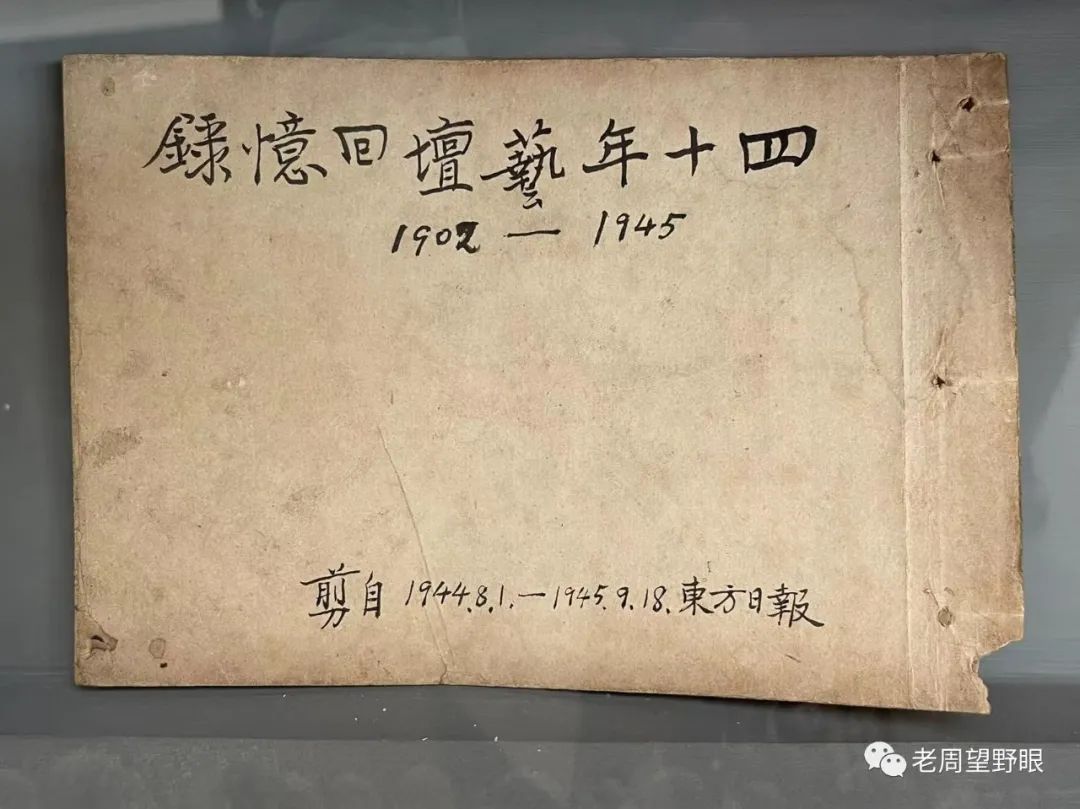 四十年藝壇回憶錄
1902 — 1945
剪自 1944.8.1.—1945.9.18.東方日報
老周望野眼